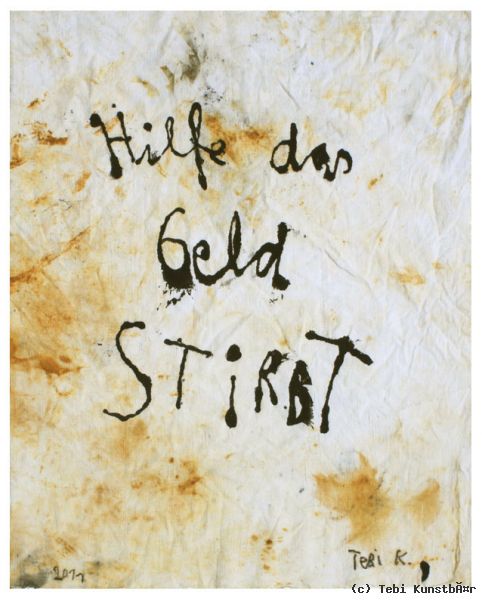 Hilfe das
Geld
STiRBT
2011
TEBI K.
(c) Tebi Kunstbär